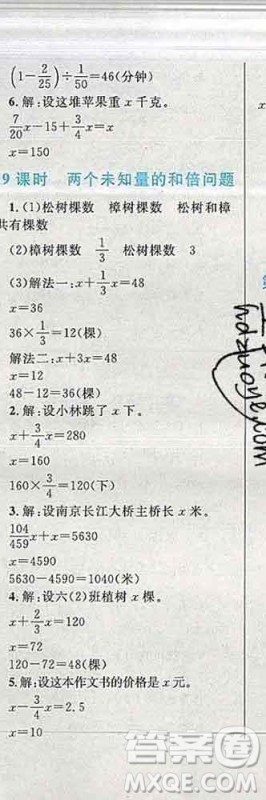 (1−2/25)÷1/50=46(分钟)
6.解:设这堆苹果重 x 千克。
7/20x−15+3/4x=x
x=150
9课时 两个未知量的和倍问题
1.(1)松树棵数 樟树棵数 松树和樟
共有棵数
(2)樟树棵数 1/3 松树棵数 3
(3)解法一:x+1/3x=48
x=36
36×1/3=12(棵)
解法二:x+3x=48
x=12
48−12=36(棵)
2.解:设小林跳了 x 下。
x+3/4x=280
x=160
160×3/4=120(下)
3.解:设南京长江大桥主桥长 x 米。
104/459x+x=5630
x=4590
5630−4590=1040(米)
4.解:设六(2)班植树 x 棵。
x+2/3x=120
x=72
120−72=48(棵)
5.解:设这本作文书的价格是 x 元。
x−3/4x=2.5
x=10
x
hdzuoye.com
答案圈
MXQE.COM